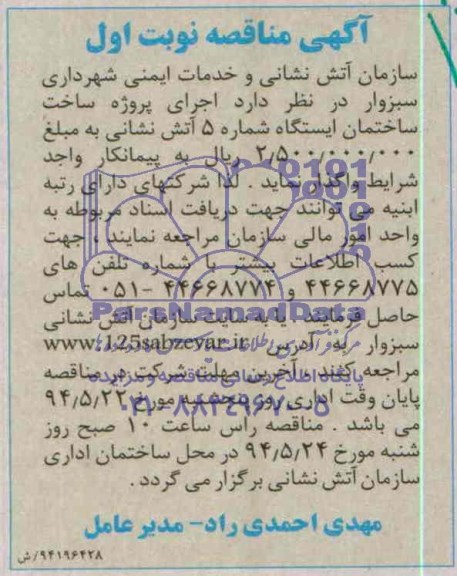 آگهی مناقصه نوبت اول
سازمان آتش نشانی و خدمات ایمنی شهرداری
سبزوار در نظر دارد اجرای پروژه ساخت
ساختمان ایستگاه شماره ۵ آتش نشانی به مبلغ
۲/۵۰۰/۰۰۰/۰۰۰ ریال به پیمانکار واجد
شرایط واگذار نماید . لذا شرکتهای دارای رتبه
ابنیه می توانند جهت دریافت اسناد مربوطه به
واحد امور مالی سازمان مراجعه نمایند ، جهت
کسب اطلاعات بیشتر با شماره تلفن های
۴۴۶۶۸۷۷۵ و ۴۴۶۶۸۷۷۴ -۰۵۱ تماس
ParsNamadData
حاصل فرمایند . یا به سایت سازمان آتش نشانی
سبزوار به آدرس www.125sabzevar.ir
مراجعه کنند . آخرین مهلت شرکت در مناقصه
پایگاه اطلاع رسانی مناقصه و مزایده
پایان وقت اداری روز پنجشنبه مورخ ۹۴/۵/۲۲
۰۲۱-۸۸۳۴۹۶۷۰-۵
می باشد . مناقصه راس ساعت ۱۰ صبح روز
شنبه مورخ ۹۴/۵/۲۴ در محل ساختمان اداری
سازمان آتش نشانی برگزار می گردد .
مهدی احمدی راد- مدیر عامل
۹۴۱۹۶۴۲۸/ش